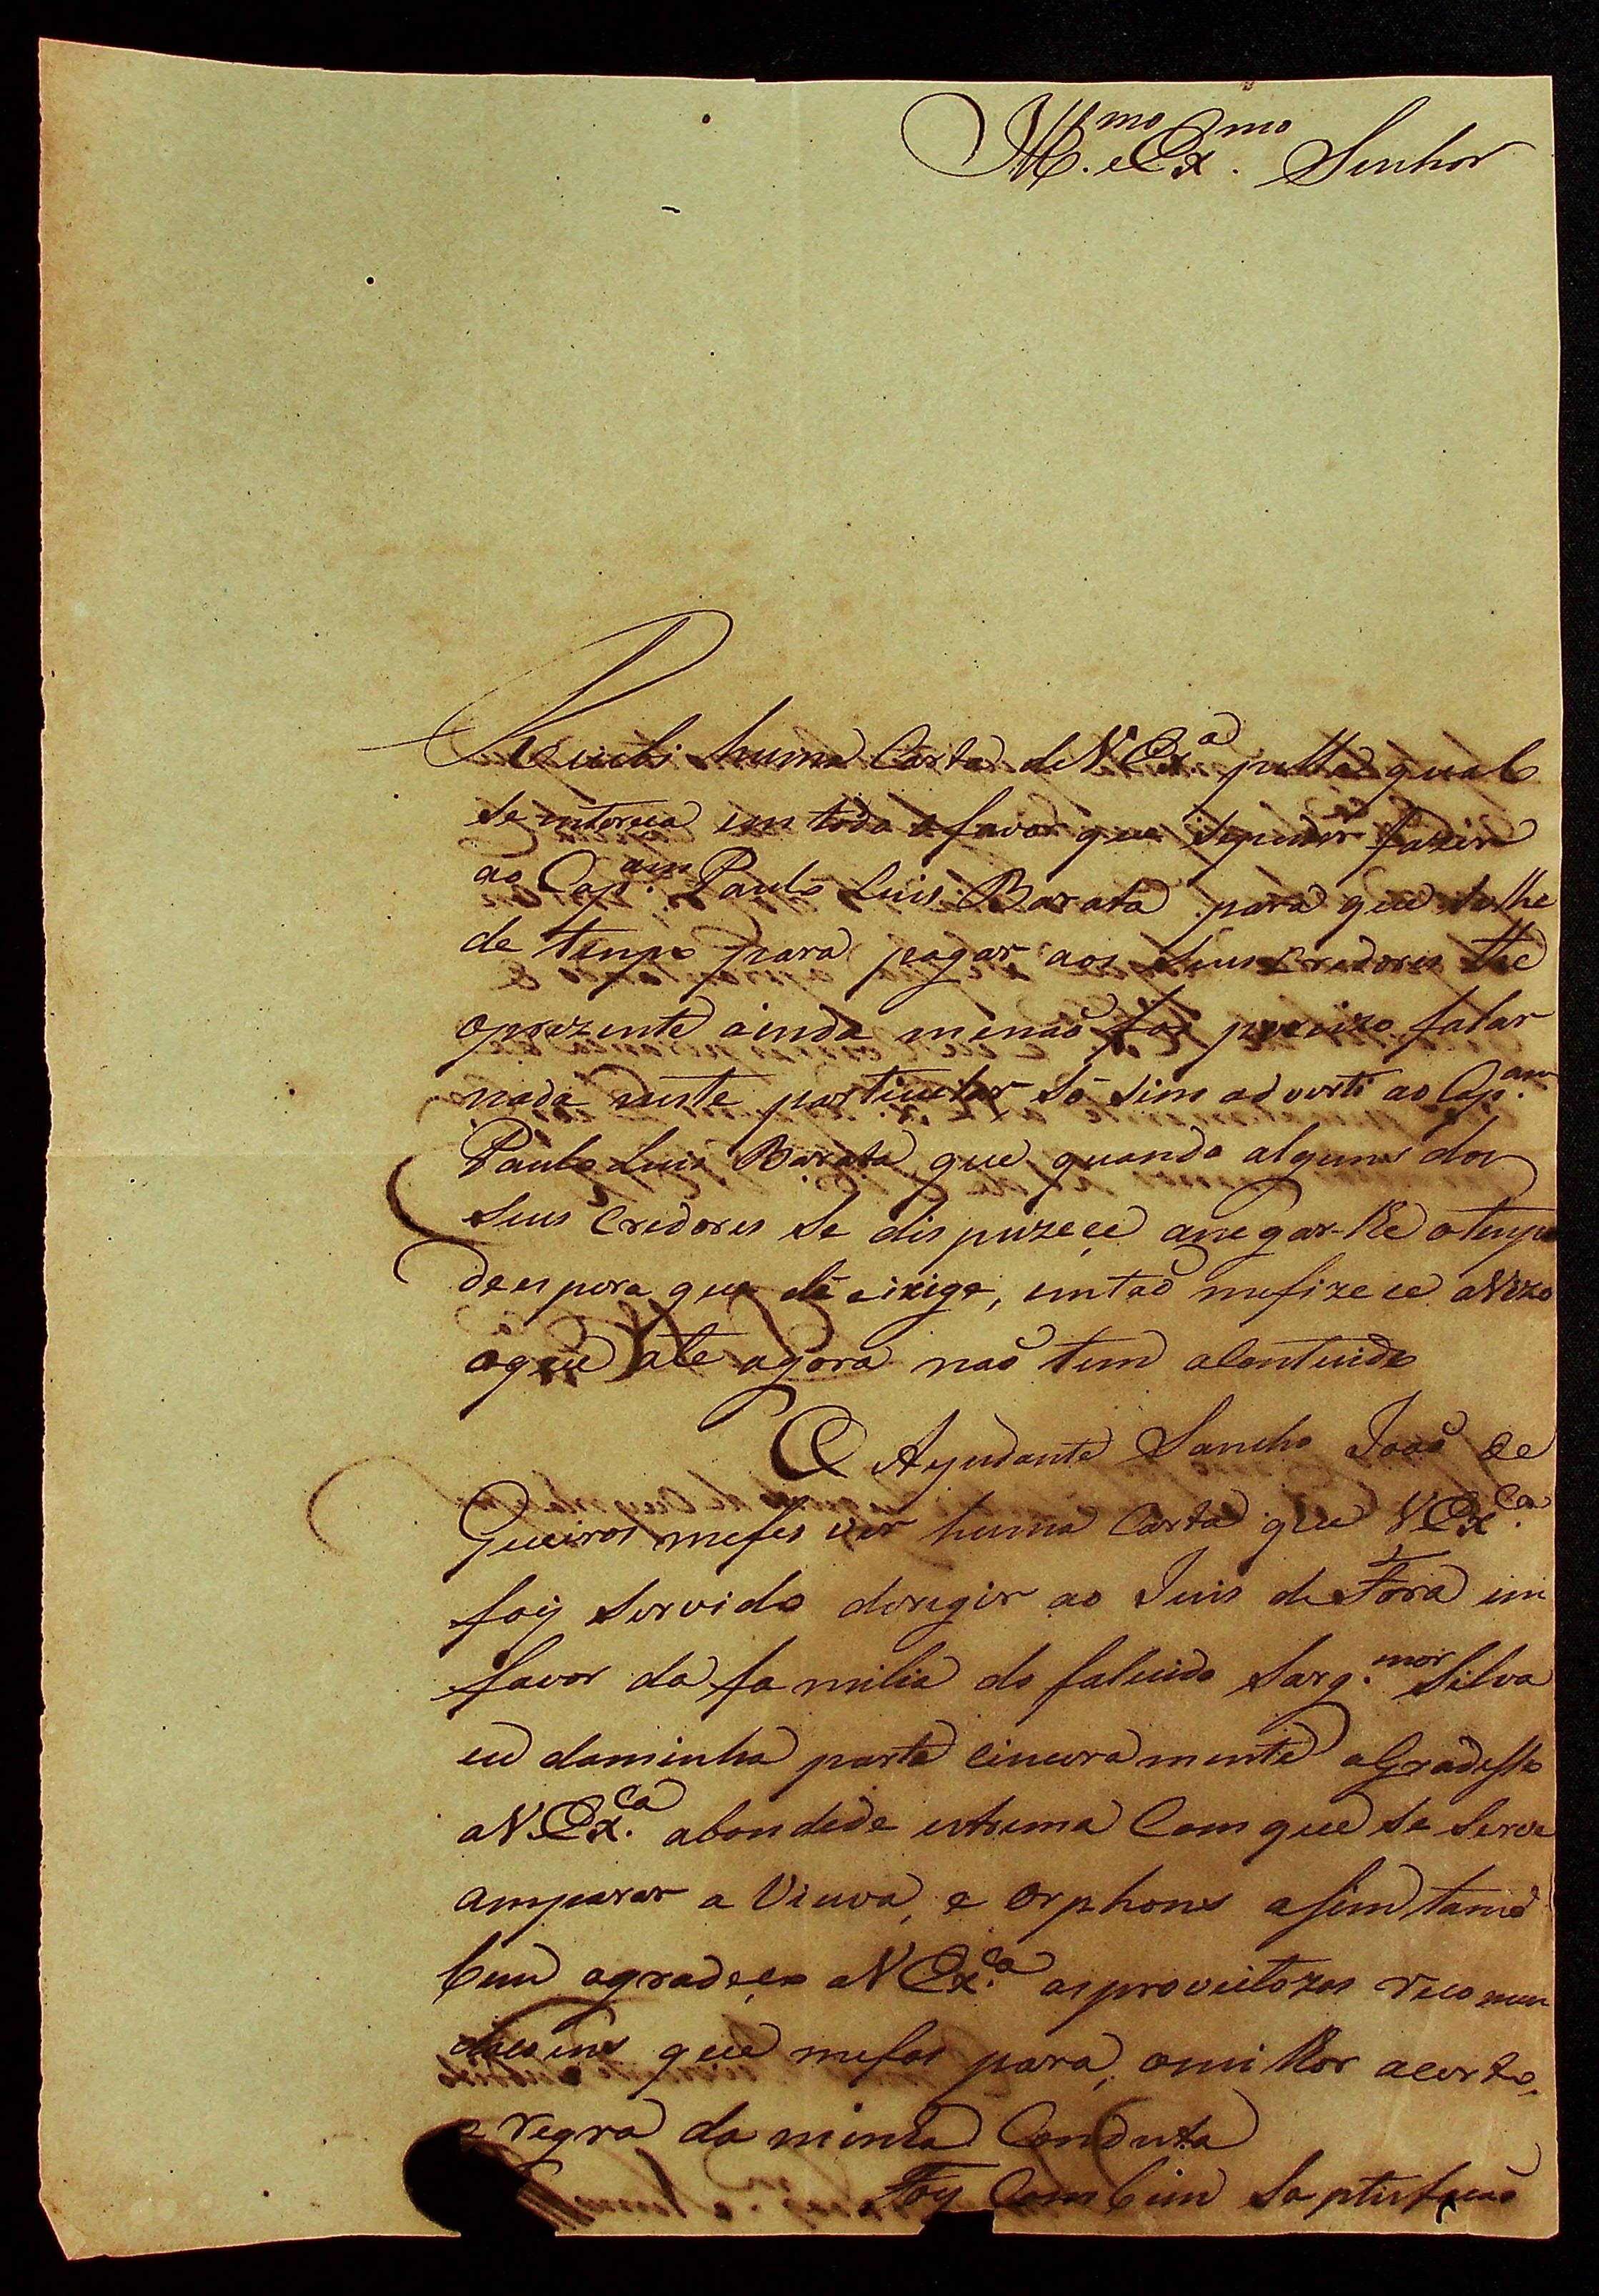 Ill.mo e Ex.mo Senhor
Recebi huma Carta de V Ex.a pella qual
se interecia em todo o favor que se puder fazer
ao Cap.am Paulo Luis Barata para que se lhe
de tempo para pagar aos seus credores the
oprezente ainda menaõ foi precizo falar
nada neste particular só sim adverti ao Cap.am
Paulo Luis Barata que quando alguns dos
seus credores se dispuzeçe anegar-lhe o tempo
de espera que elle exige, entaõ mefizece aVizo
oque ate agora naõ tem acontecido
O Ajudante Sancho Joaõ de
Queiros mefes ver huma Carta que V Ex.ca
foy servido deregir ao Juis de Fora em
favor da familia do falecido Sarg.mor Silva
eu daminha parte cinceramente aGradesso
aV. Ex.ca abondade extrema Com que se serve
amparar a Viuva, e orphons asim tam
bem agradeço aV Ex.ca asproveitozas recomen
dacoens que mefas para omilhor acerto,
e regra da minha Conduta
Foy Com bem